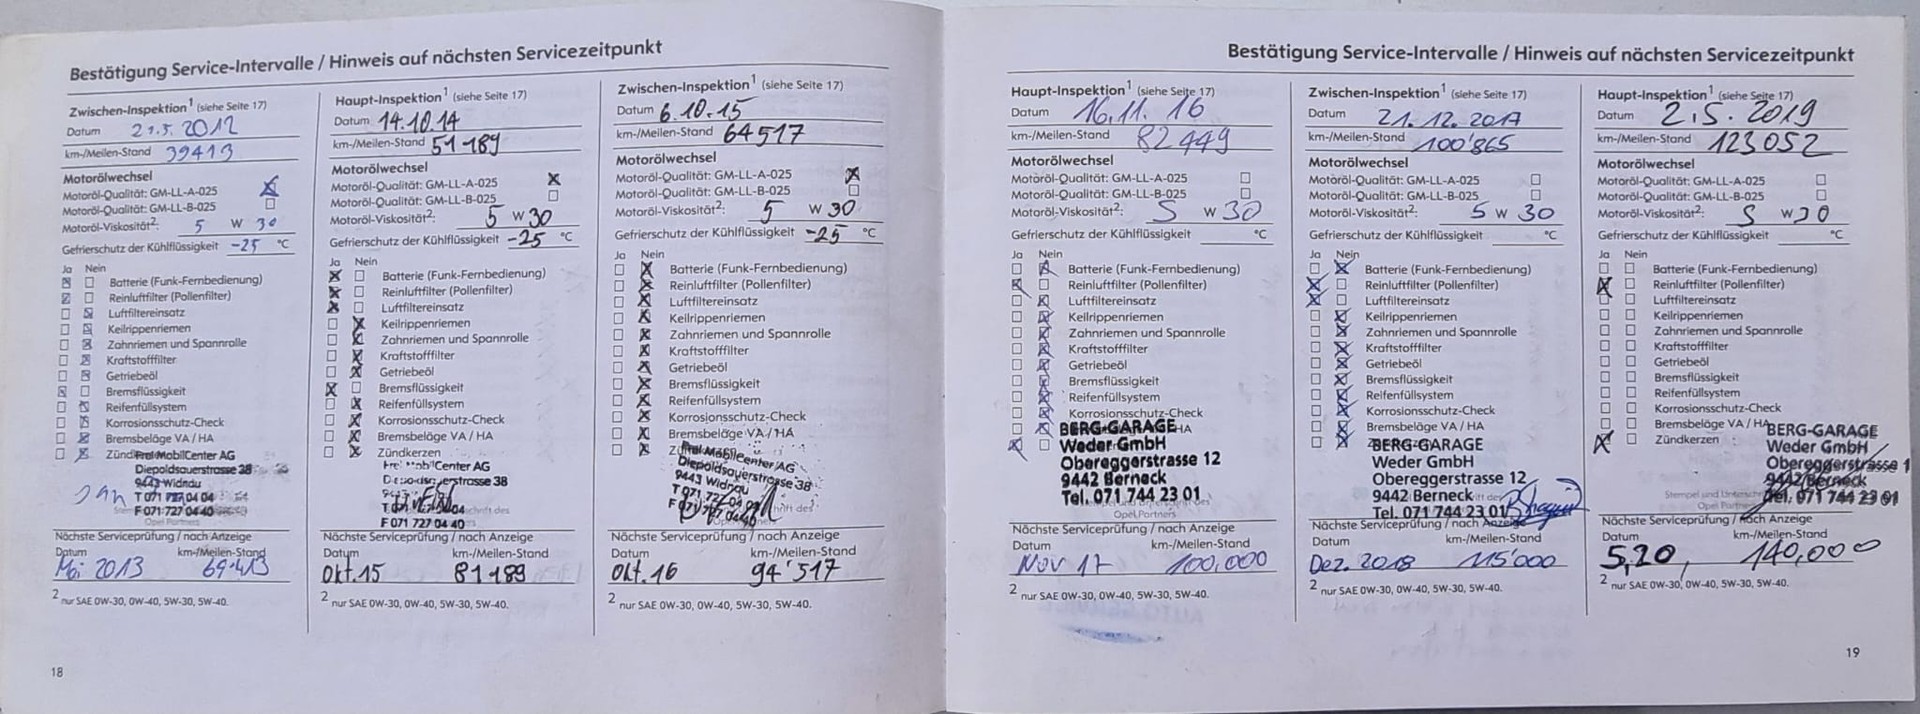 Bestätigung Service-Intervalle / Hinweis auf nächsten Servicezeitpunkt
Zwischen-Inspektion¹ (siehe Seite 17)
Datum 21.5. 2012
km-/Meilen-Stand 39413
Motorölwechsel
Motoröl-Qualität: GM-LL-A-025
Motoröl-Qualität: GM-LL-B-025
Motoröl-Viskosität²: 5 W 30
Gefrierschutz der Kühlflüssigkeit -25 °C
Ja Nein
Batterie (Funk-Fernbedienung)
Reinluftfilter (Pollenfilter)
Luftfiltereinsatz
Keilrippenriemen
Zahnriemen und Spannrolle
Kraftstofffilter
Getriebeöl
Bremsflüssigkeit
Reifenfüllsystem
Korrosionsschutz-Check
Bremsbeläge VA / HA
Frei MobilCenter AG
Diepoldsauerstrasse 38
9443 Widnau
T 071 727 04 04
F 071 727 04 40
Opel Partners
Nächste Serviceprüfung / nach Anzeige
Datum km-/Meilen-Stand
Mai 2013 69413
² nur SAE 0W-30, 0W-40, 5W-30, 5W-40.
18
Haupt-Inspektion¹ (siehe Seite 17)
Datum 14.10.14
km-/Meilen-Stand 51189
Motorölwechsel
Motoröl-Qualität: GM-LL-A-025
Motoröl-Qualität: GM-LL-B-025
Motoröl-Viskosität²: 5 W 30
Gefrierschutz der Kühlflüssigkeit -25 °C
Ja Nein
Batterie (Funk-Fernbedienung)
Reinluftfilter (Pollenfilter)
Luftfiltereinsatz
Keilrippenriemen
Zahnriemen und Spannrolle
Kraftstofffilter
Getriebeöl
Bremsflüssigkeit
Reifenfüllsystem
Korrosionsschutz-Check
Bremsbeläge VA / HA
Zündkerzen
Center AG
strasse 38
F 071 727 04 40
Nächste Serviceprüfung / nach Anzeige
Datum km-/Meilen-Stand
Okt.15 81189
² nur SAE 0W-30, 0W-40, 5W-30, 5W-40.
Zwischen-Inspektion¹ (siehe Seite 17)
Datum 6.10.15
km-/Meilen-Stand 64517
Motorölwechsel
Motoröl-Qualität: GM-LL-A-025
Motoröl-Qualität: GM-LL-B-025
Motoröl-Viskosität²: 5 W 30
Gefrierschutz der Kühlflüssigkeit -25 °C
Ja Nein
Batterie (Funk-Fernbedienung)
Reinluftfilter (Pollenfilter)
Luftfiltereinsatz
Keilrippenriemen
Zahnriemen und Spannrolle
Kraftstofffilter
Getriebeöl
Bremsflüssigkeit
Reifenfüllsystem
Korrosionsschutz-Check
Bremsbeläge VA / HA
Frei MobilCenter AG
Diepoldsauerstrasse 38
9443 Widnau
Nächste Serviceprüfung / nach Anzeige
Datum km-/Meilen-Stand
Okt.16 94'517
² nur SAE 0W-30, 0W-40, 5W-30, 5W-40.
Bestätigung Service-Intervalle / Hinweis auf nächsten Servicezeitpunkt
Haupt-Inspektion¹ (siehe Seite 17)
Datum 16.11.16
km-/Meilen-Stand 82449
Motorölwechsel
Motoröl-Qualität: GM-LL-A-025
Motoröl-Qualität: GM-LL-B-025
Motoröl-Viskosität²: 5 W 30
Gefrierschutz der Kühlflüssigkeit °C
Ja Nein
Batterie (Funk-Fernbedienung)
Reinluftfilter (Pollenfilter)
Luftfiltereinsatz
Keilrippenriemen
Zahnriemen und Spannrolle
Kraftstofffilter
Getriebeöl
Bremsflüssigkeit
Reifenfüllsystem
Korrosionsschutz-Check
BERG-GARAGE
Weder GmbH
Obereggerstrasse 12
9442 Berneck
Tel. 071 744 23 01
Opel Partners
Nächste Serviceprüfung / nach Anzeige
Datum km-/Meilen-Stand
Nov 17 100,000
² nur SAE 0W-30, 0W-40, 5W-30, 5W-40.
Zwischen-Inspektion¹ (siehe Seite 17)
Datum 21.12.2017
km-/Meilen-Stand 100'865
Motorölwechsel
Motoröl-Qualität: GM-LL-A-025
Motoröl-Qualität: GM-LL-B-025
Motoröl-Viskosität²: 5 W 30
Gefrierschutz der Kühlflüssigkeit °C
Ja Nein
Batterie (Funk-Fernbedienung)
Reinluftfilter (Pollenfilter)
Luftfiltereinsatz
Keilrippenriemen
Zahnriemen und Spannrolle
Kraftstofffilter
Getriebeöl
Bremsflüssigkeit
Reifenfüllsystem
Korrosionsschutz-Check
Bremsbeläge VA / HA
BERG-GARAGE
Weder GmbH
Obereggerstrasse 12
9442 Berneck
Tel. 071 744 23 01
Nächste Serviceprüfung / nach Anzeige
Datum km-/Meilen-Stand
Dez. 2018 115'000
² nur SAE 0W-30, 0W-40, 5W-30, 5W-40.
Haupt-Inspektion¹ (siehe Seite 17)
Datum 2.5.2019
km-/Meilen-Stand 123052
Motorölwechsel
Motoröl-Qualität: GM-LL-A-025
Motoröl-Qualität: GM-LL-B-025
Motoröl-Viskosität²: 5 W 30
Gefrierschutz der Kühlflüssigkeit °C
Ja Nein
Batterie (Funk-Fernbedienung)
Reinluftfilter (Pollenfilter)
Luftfiltereinsatz
Keilrippenriemen
Zahnriemen und Spannrolle
Kraftstofffilter
Getriebeöl
Bremsflüssigkeit
Reifenfüllsystem
Korrosionsschutz-Check
Bremsbeläge VA / HA
Zündkerzen
BERG-GARAGE
Weder GmbH
Obereggerstrasse 1
9442 Berneck
Tel. 071 744 23 01
Nächste Serviceprüfung / nach Anzeige
Datum km-/Meilen-Stand
5,20, 140,000
² nur SAE 0W-30, 0W-40, 5W-30, 5W-40.
19